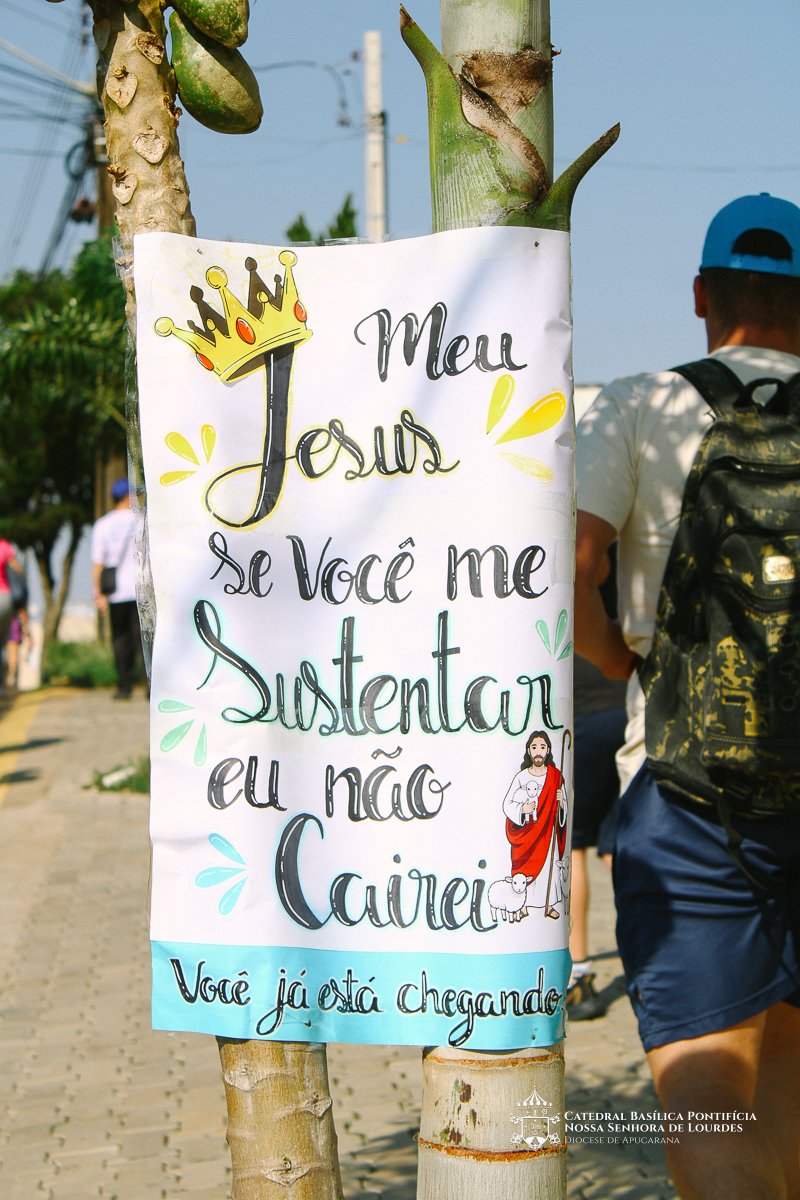 Meu
Jesus
se Você me
Sustentar
eu não
Cairei
Você já está chegando
Catedral Basílica Pontifícia
Nossa Senhora de Lourdes
Diocese de Apucarana